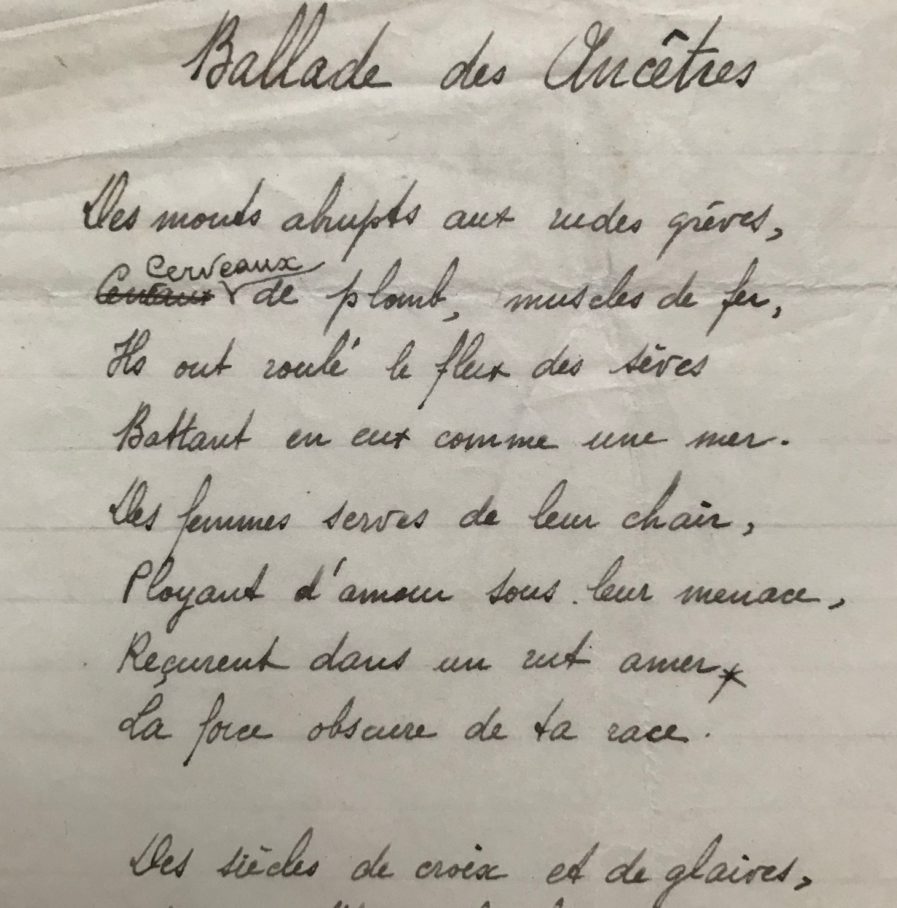 Ballade des Ancêtres
Des monts abrupts aux rudes grèves,
Cerveaux
Cerveaux de plomb, muscles de fer,
Ils ont roulé le flux des sèves
Battant en eux comme une mer.
Des femmes serves de leur chair,
Ployant d'amour sous leur menace,
Reçurent dans un rut amer
La force obscure de ta race.
Des siècles de croix et de glaives,